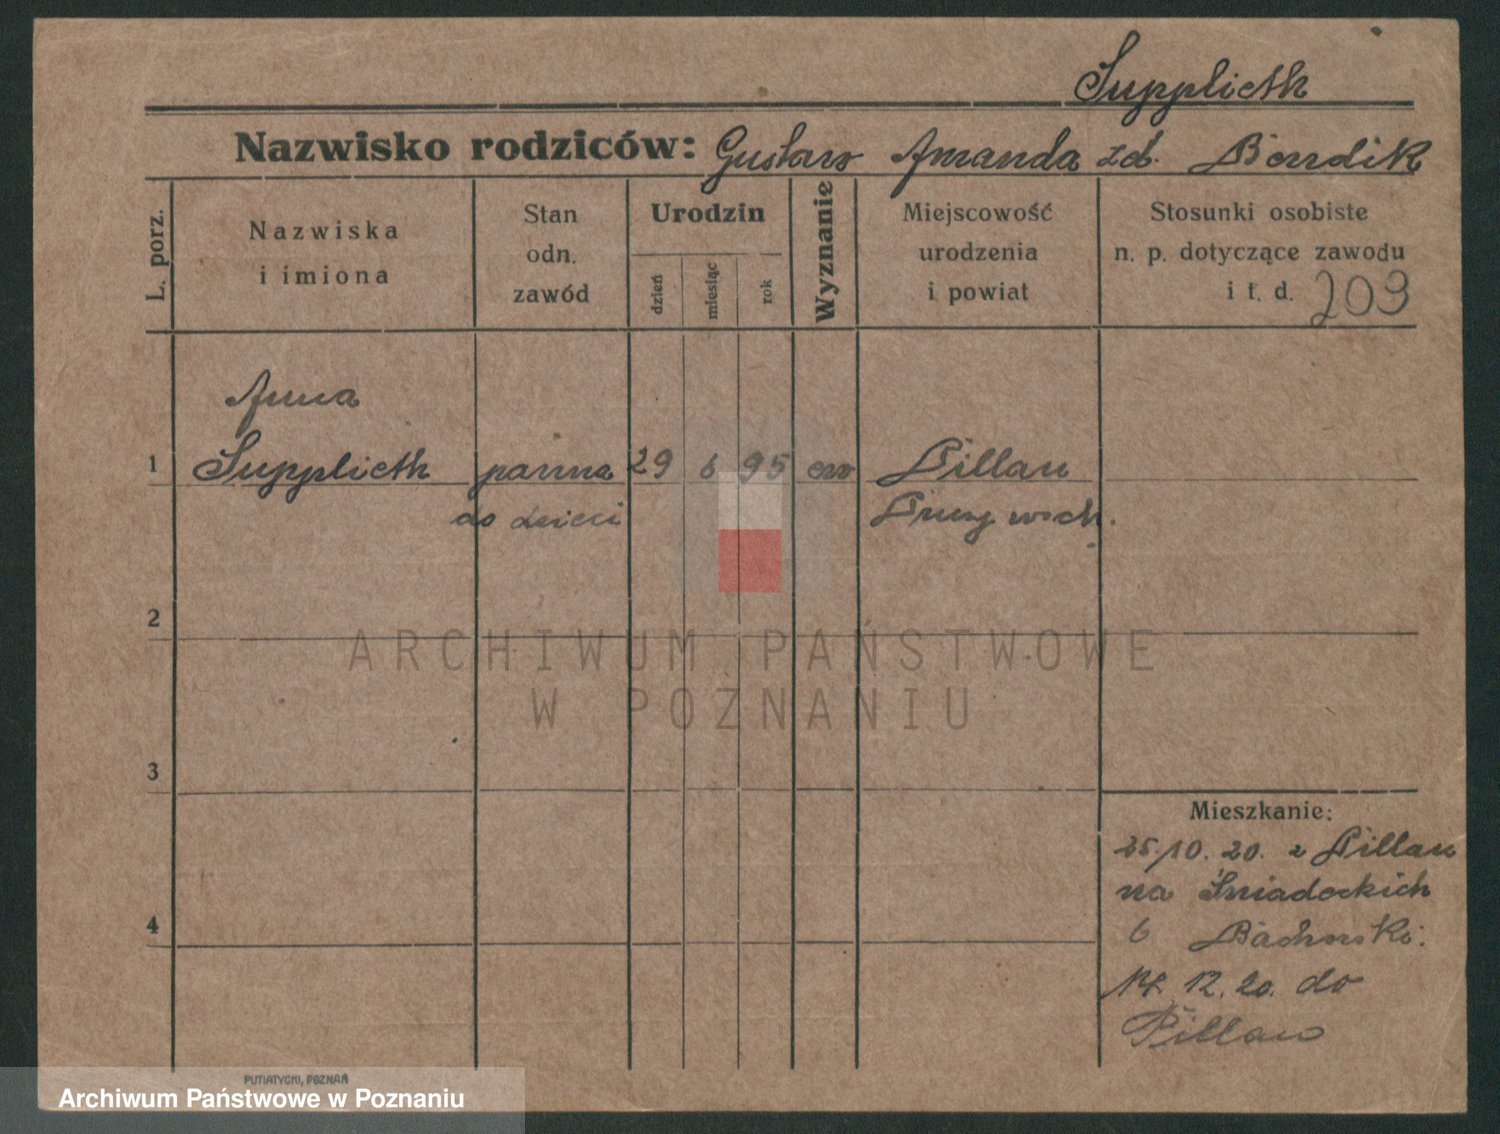 Supplieth
Nazwisko rodziców: Gustaw Amanda zd. Bendik
L. porz.
Nazwiska
i imiona
Stan
odn.
zawód
Urodzin
dzień
miesiąc
rok
Wyznanie
Miejscowość
urodzenia
i powiat
Stosunki osobiste
n. p. dotyczące zawodu
i t. d. 209
Anna
1 Supplieth panna 29 6 95 ew Pillau
do dzieci Prusy wsch.
2
ARCHIWUM PAŃSTWOWE
W POZNANIU
3
Mieszkanie:
25/10. 20. z Pillau
na Śniadeckich
4
6 Bachorski.
12. 20. do
Pillau
PUTIATYCKI, POZNAŃ
Archiwum Państwowe w Poznaniu